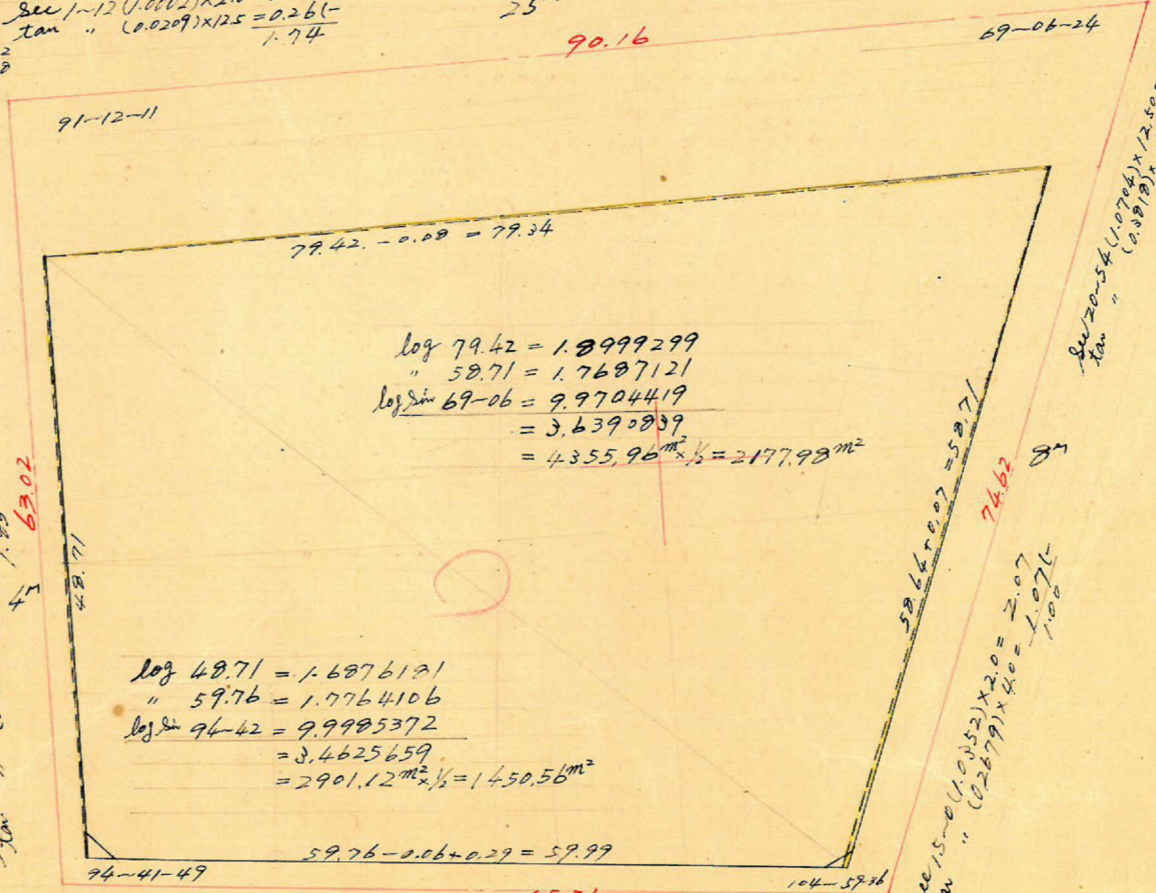 sec 1~12 (1.0002)×2.0
tan 〃 (0.0209)×12.5 = 0.26(-
1.74
2
8
25
90.16
69~06~24
91~12~11
79.42. - 0.08 = 79.34
log 79.42 = 1.8999299
〃 58.71 = 1.7687121
log sin 69~06 = 9.9704419
= 3.6390839
= 4355.96m² × ½ = 2177.98m²
sec 20~54 (1.0704)×12.50
tan 〃 (0.3818)×
63.02
4m
48.71
58.64+0.07 = 58.71
74.62
8m
log 48.71 = 1.6876181
〃 59.76 = 1.7764106
log sin 94~42 = 9.9985372
= 3.4625659
= 2901.12m² × ½ = 1450.56m²
15~0 (1.0352)×2.0 = 2.07
〃 (0.2679)×4.0 = 1.07(-
1.00
59.76-0.06+0.29 = 59.99
94~41~49
104~59~36
tan